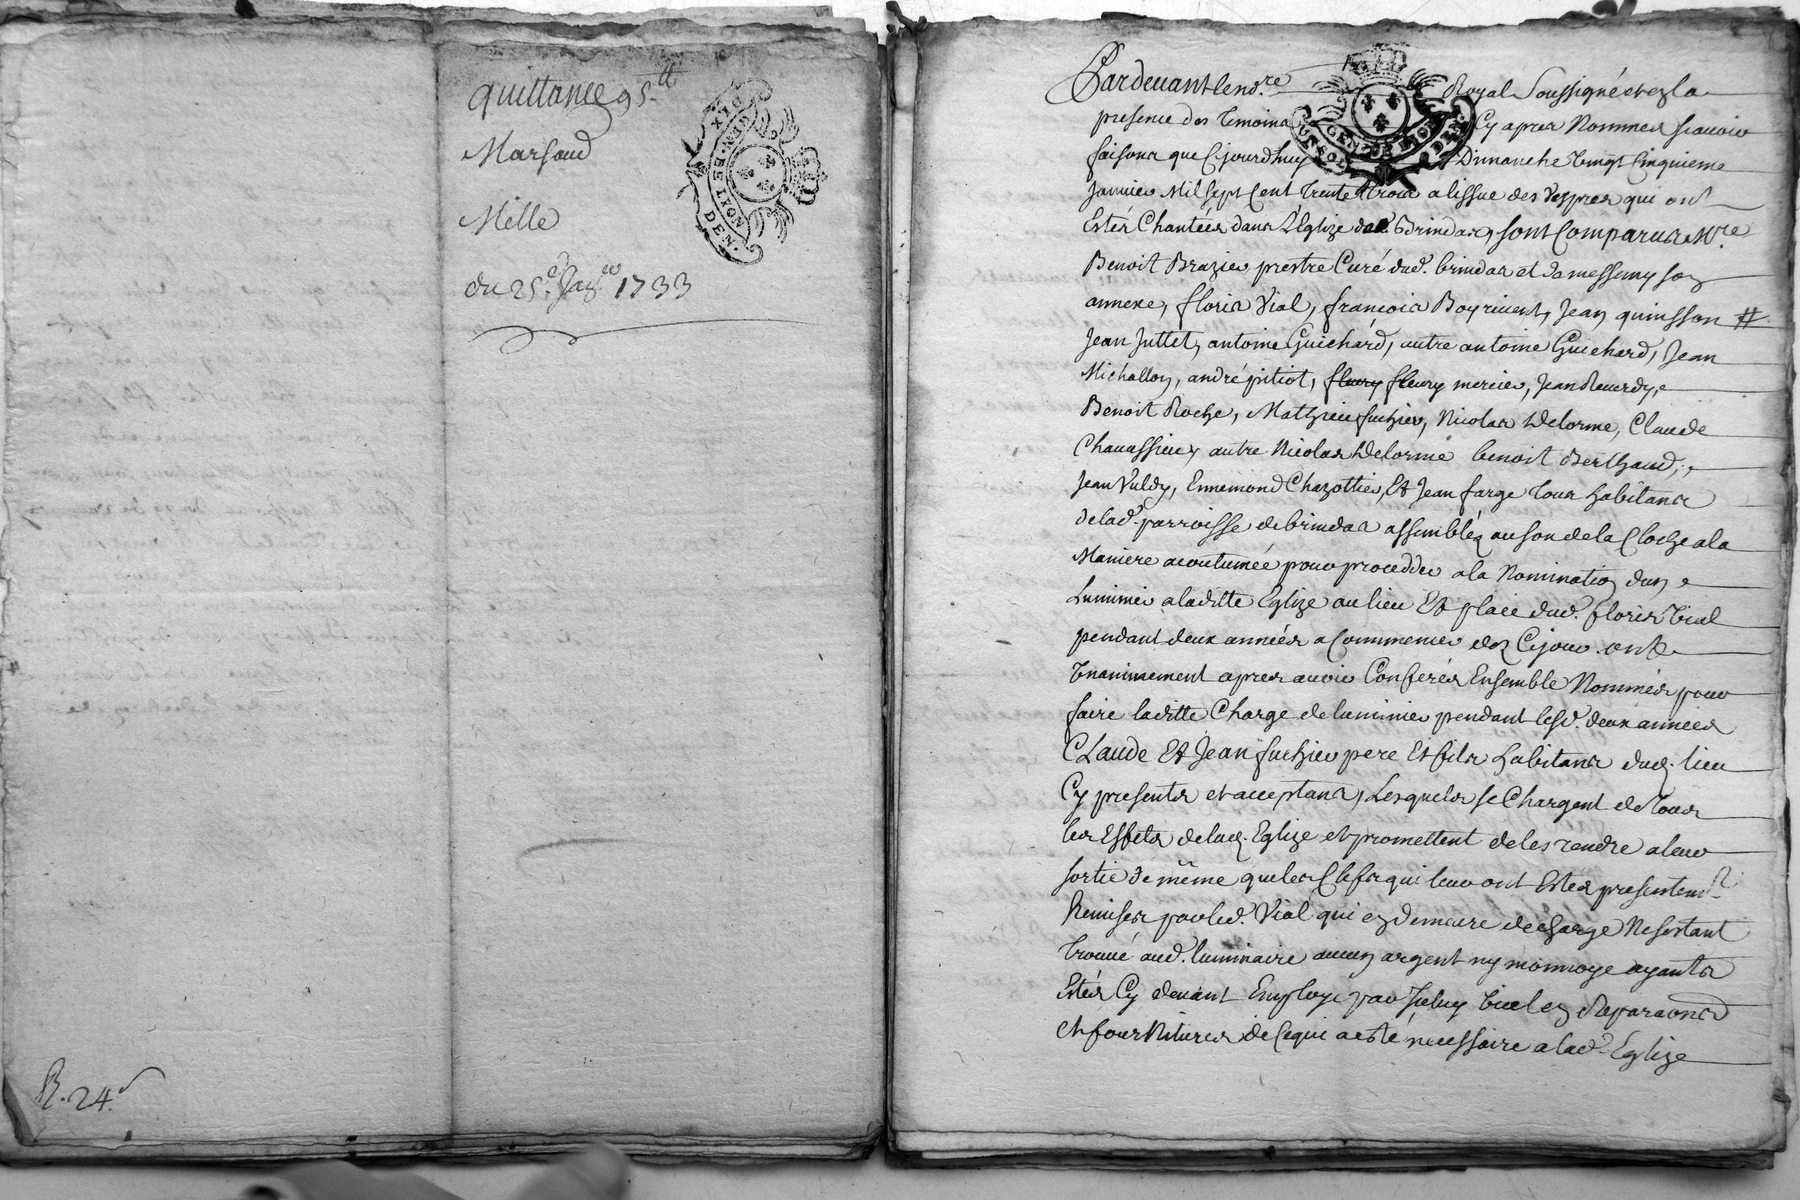 quittance 95.tt
Marsaud
Mille
du 25.e Jan.er 1733
GEN. DE LYON
DEN.
R. 24.s
Pardevant le no.re Royal Soussigné et en la
presence des Temoins Cy apres Nommes scavoir
faisons que Cejourdhuy Dimanche Vingt Cinquieme
Janvier Mil Sept Cent Trente trois a lissue des Vespres qui ont
Estés Chantées dans L'Eglize de Brindas, sont Comparus M.re
Benoit Brazier prestre Curé dud. brindas et de messemy son
annexe, floris Vial, francois Boyrivent, Jean quinsson #
Jean Juttet, antoine Guichard, autre antoine Guichard, Jean
Michallon, andré pitiot, fleury fleury mercier, Jean Reverdy,
Benoit Roche, Mathieu fuchier, Nicolas Delorme, Claude
Chavassieu, autre Nicolas Delorme benoit Berthaud,
Jean Vuldy, Ennemond Chazottier, Et Jean farge tous habitans
de lad. parroisse de brindas assemblés au son de la Cloche a la
Maniere acoutumée pour procedder a la Nomination dun
Luminier a laditte Eglize au lieu Et place dud. floris Vial
pendant deux années a Commencer dez Cejour. ont
Unanimement apres avoir Conferés Ensemble Nommés pour
faire laditte Charge de luminier pendant lesd. deux années
Claude Et Jean fuchier pere Et fils habitans dud. lieu
Cy presents et acceptans, Lesquels se Chargent de Tous
les Effets de lad. Eglize et promettent de les rendre a leur
sortie de même que les Clefs qui leur ont Estes presentem.t
Remises par led. Vial qui en demeure decharge Ne sestant
trouvé aud. luminaire aucun argent ny monnoye ayants
Estés Cy devant Employe par Iceluy Vial en Reparaons
et fournitures de Ce qui a esté necessaire a lad. Eglize